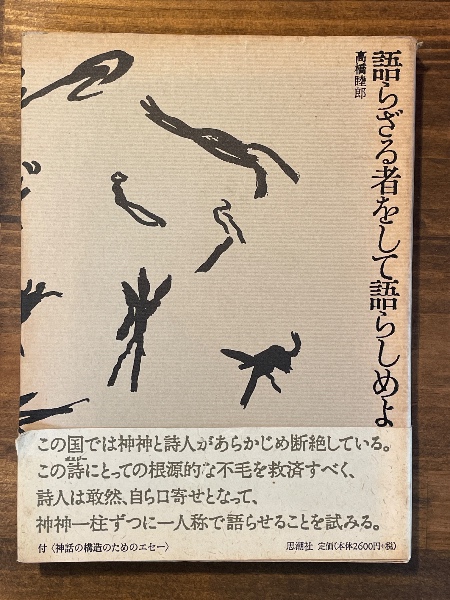 語らざる者をして語らしめよ
高橋睦郎
この国では神神と詩人があらかじめ断絶している。
この詩にとっての根源的な不毛を救済すべく、
詩人は敢然、自ら口寄せとなって、
神神一柱ずつに一人称で語らせることを試みる。
付〈神話の構造のためのエセー〉
思潮社 定価(本体2600円+税)